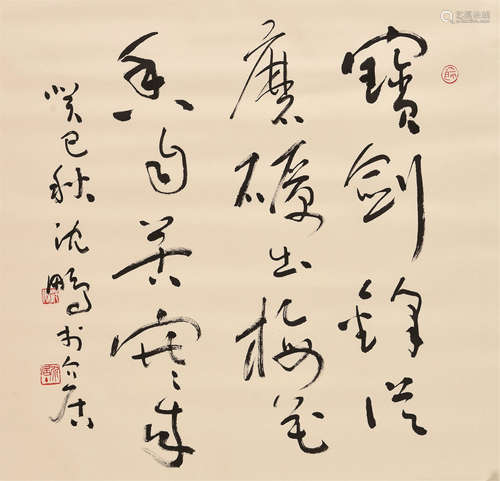 寶劍鋒從
磨礪出梅花
香自苦寒來
癸巳秋沈鹏於介居